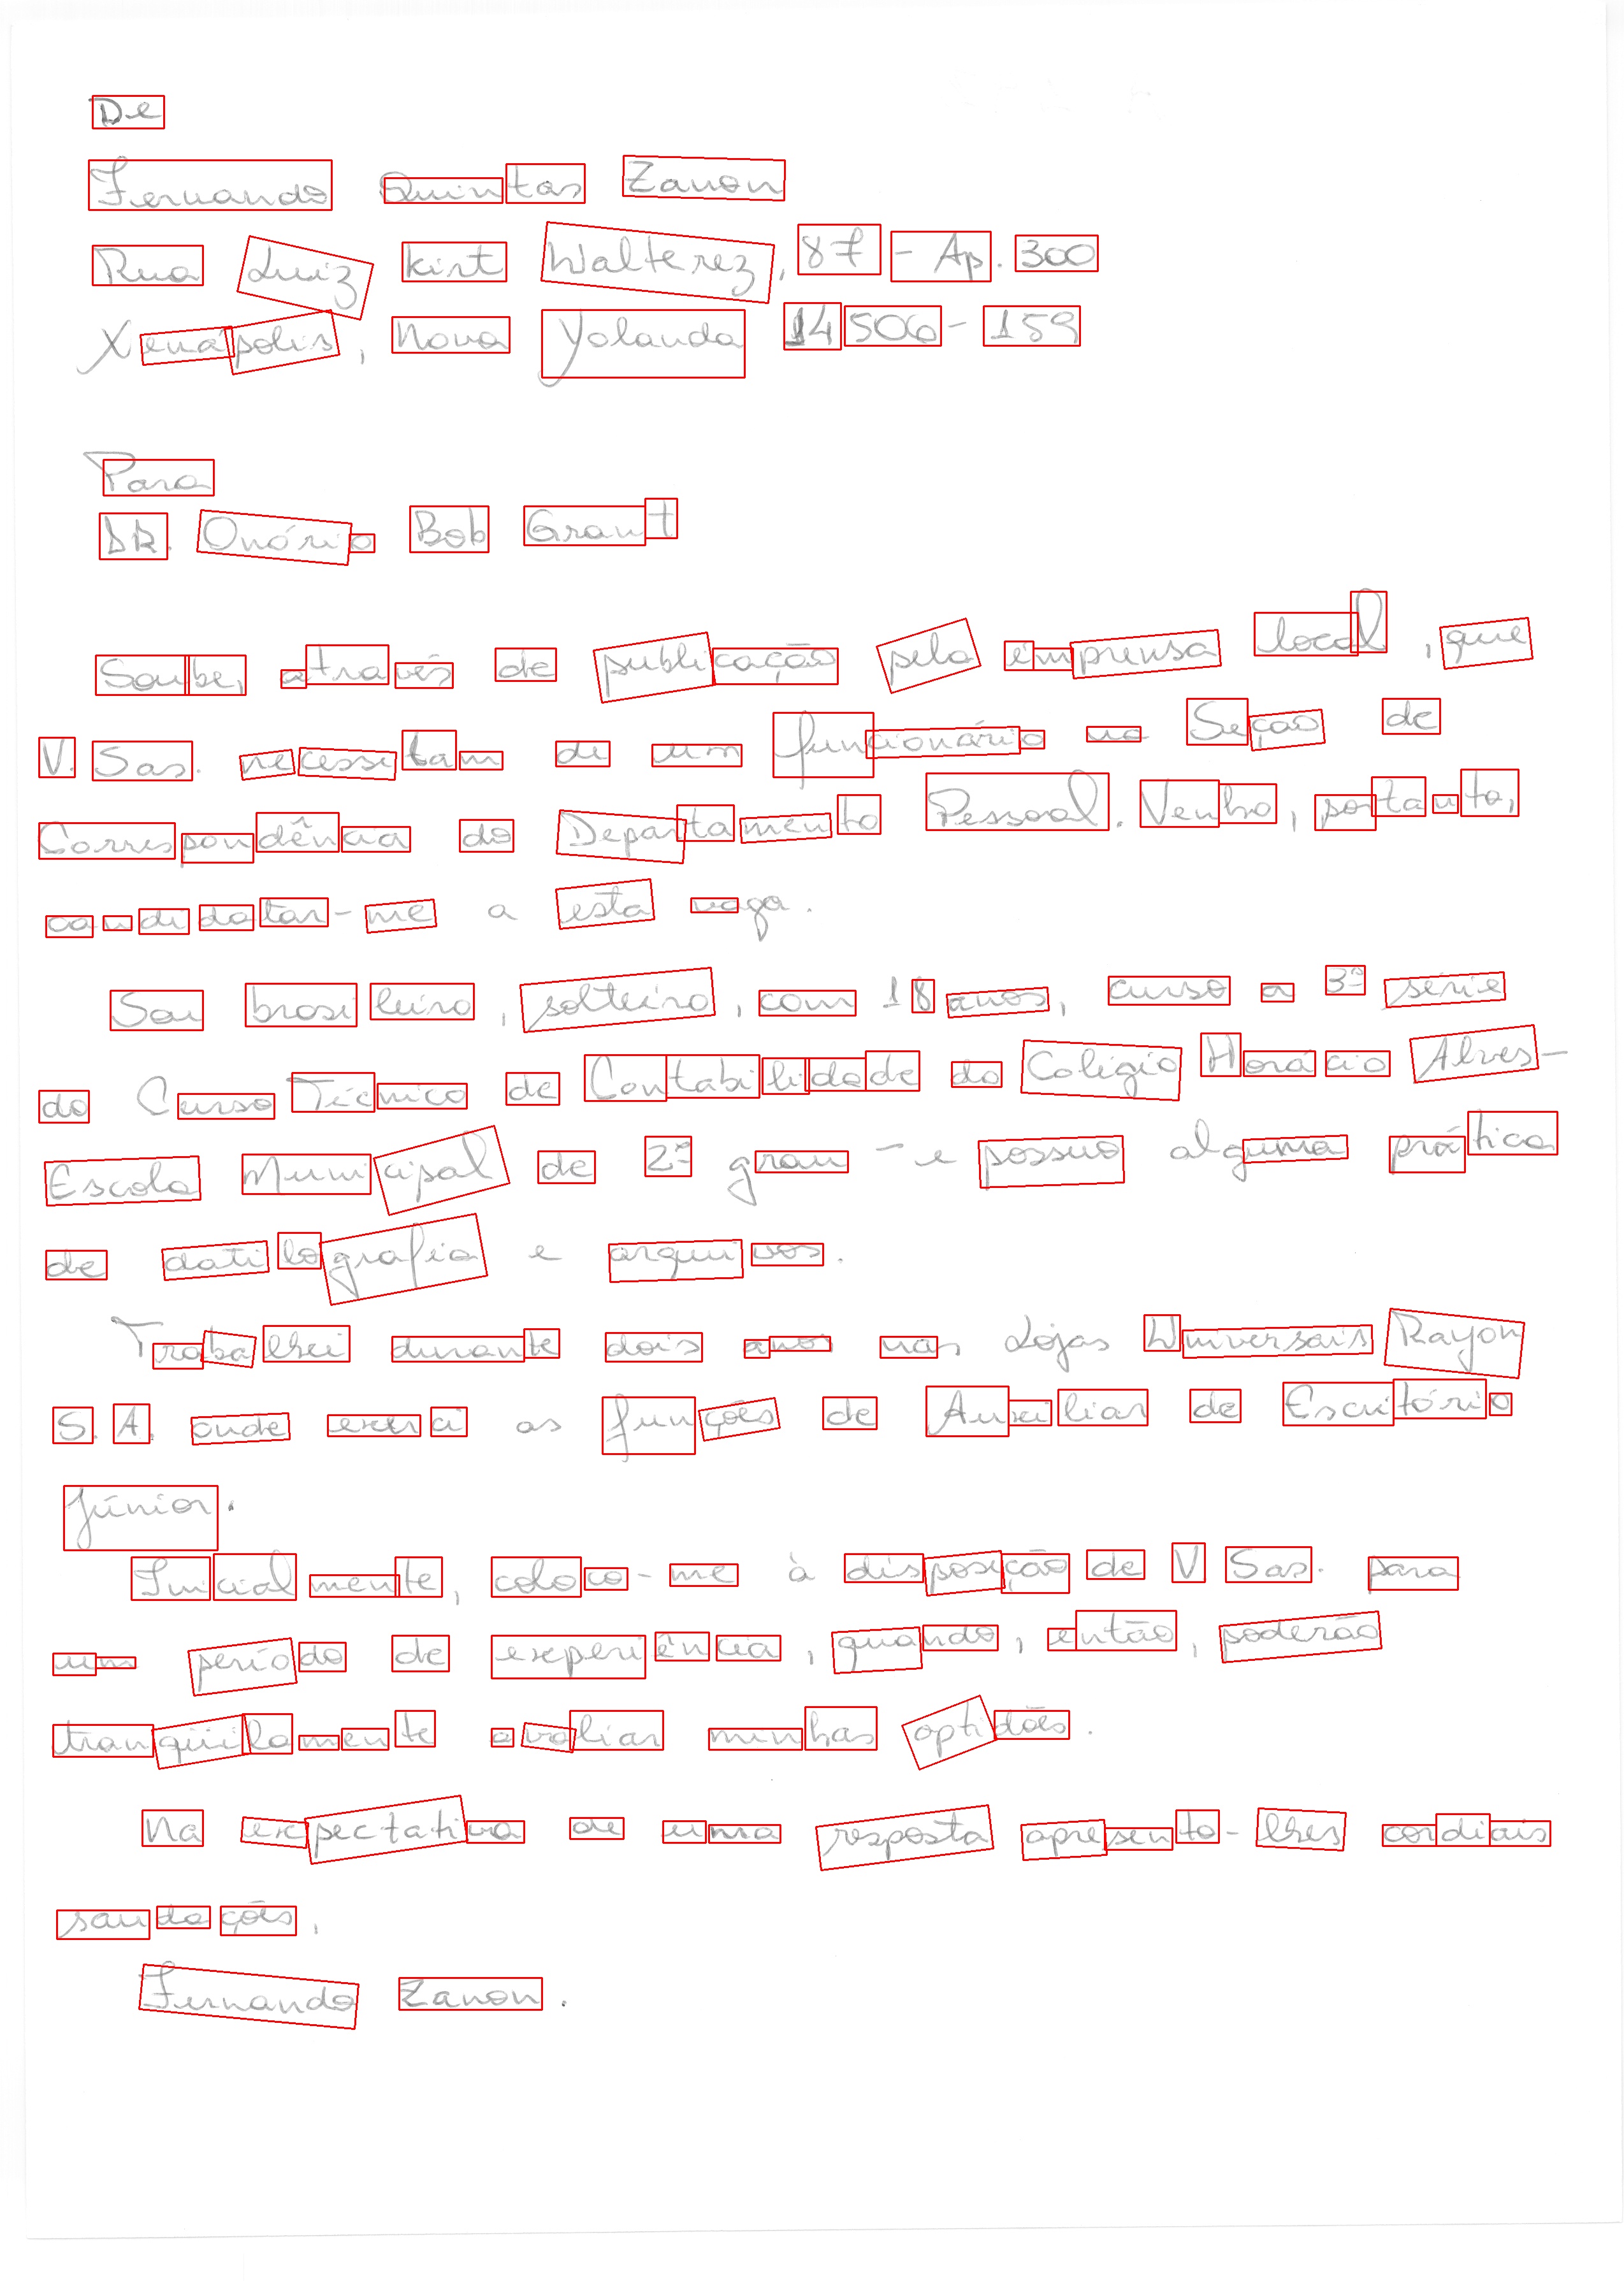 De
Fernando Quintas Zanon
Rua Luiz Kirt Walterez, 87 - Ap. 300
Xenápolis, Nova Yolanda 14506-159
Para
DR. Onório Bob Grant
Soube, através de publicação pela imprensa local, que
V. Sas. necessitam de um funcionário na Seção de
Correspondência do Departamento Pessoal. Venho, portanto,
candidatar-me a esta vaga.
Sou brasileiro, solteiro, com 18 anos, curso a 3ª série
do Curso Técnico de Contabilidade do Colégio Horácio Alves-
Escola Municipal de 2º grau - e possuo alguma prática
de datilografia e arquivos.
Trabalhei durante dois anos nas Lojas Universais Rayon
S. A. onde exerci as funções de Auxiliar de Escritório
Júnior.
Inicialmente, coloco-me à disposição de V Sas. para
um período de experiência, quando, então, poderão
tranqüilamente avaliar minhas aptidões.
Na expectativa de uma resposta apresento-lhes cordiais
saudações,
Fernando Zanon.